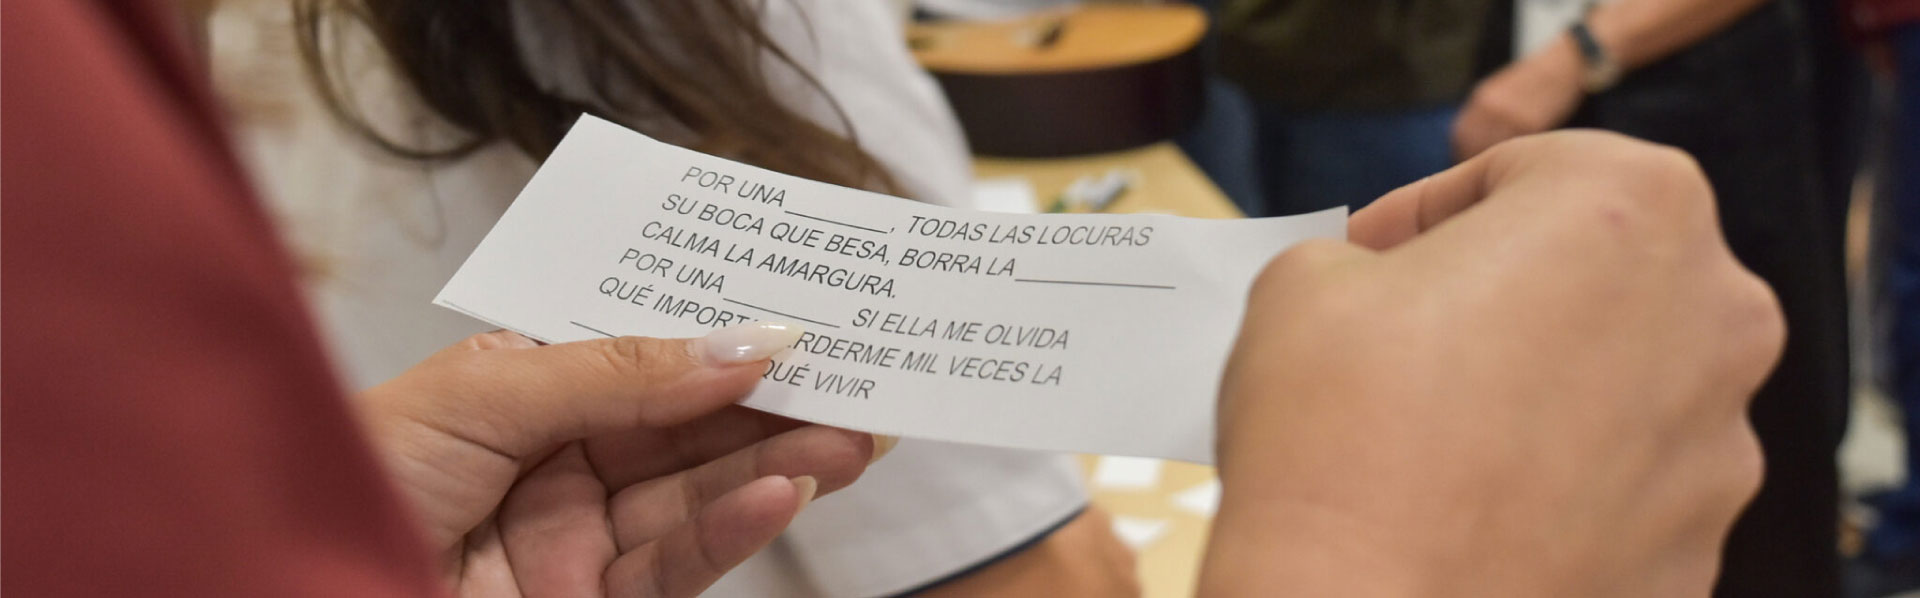 POR UNA ________, TODAS LAS LOCURAS
SU BOCA QUE BESA, BORRA LA ____________
CALMA LA AMARGURA.
POR UNA _________ SI ELLA ME OLVIDA
QUÉ MIL VECES LA
QUÉ VIVIR